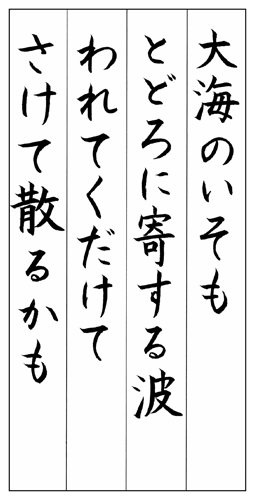 大海のいそも
とどろに寄する波
われてくだけて
さけて散るかも